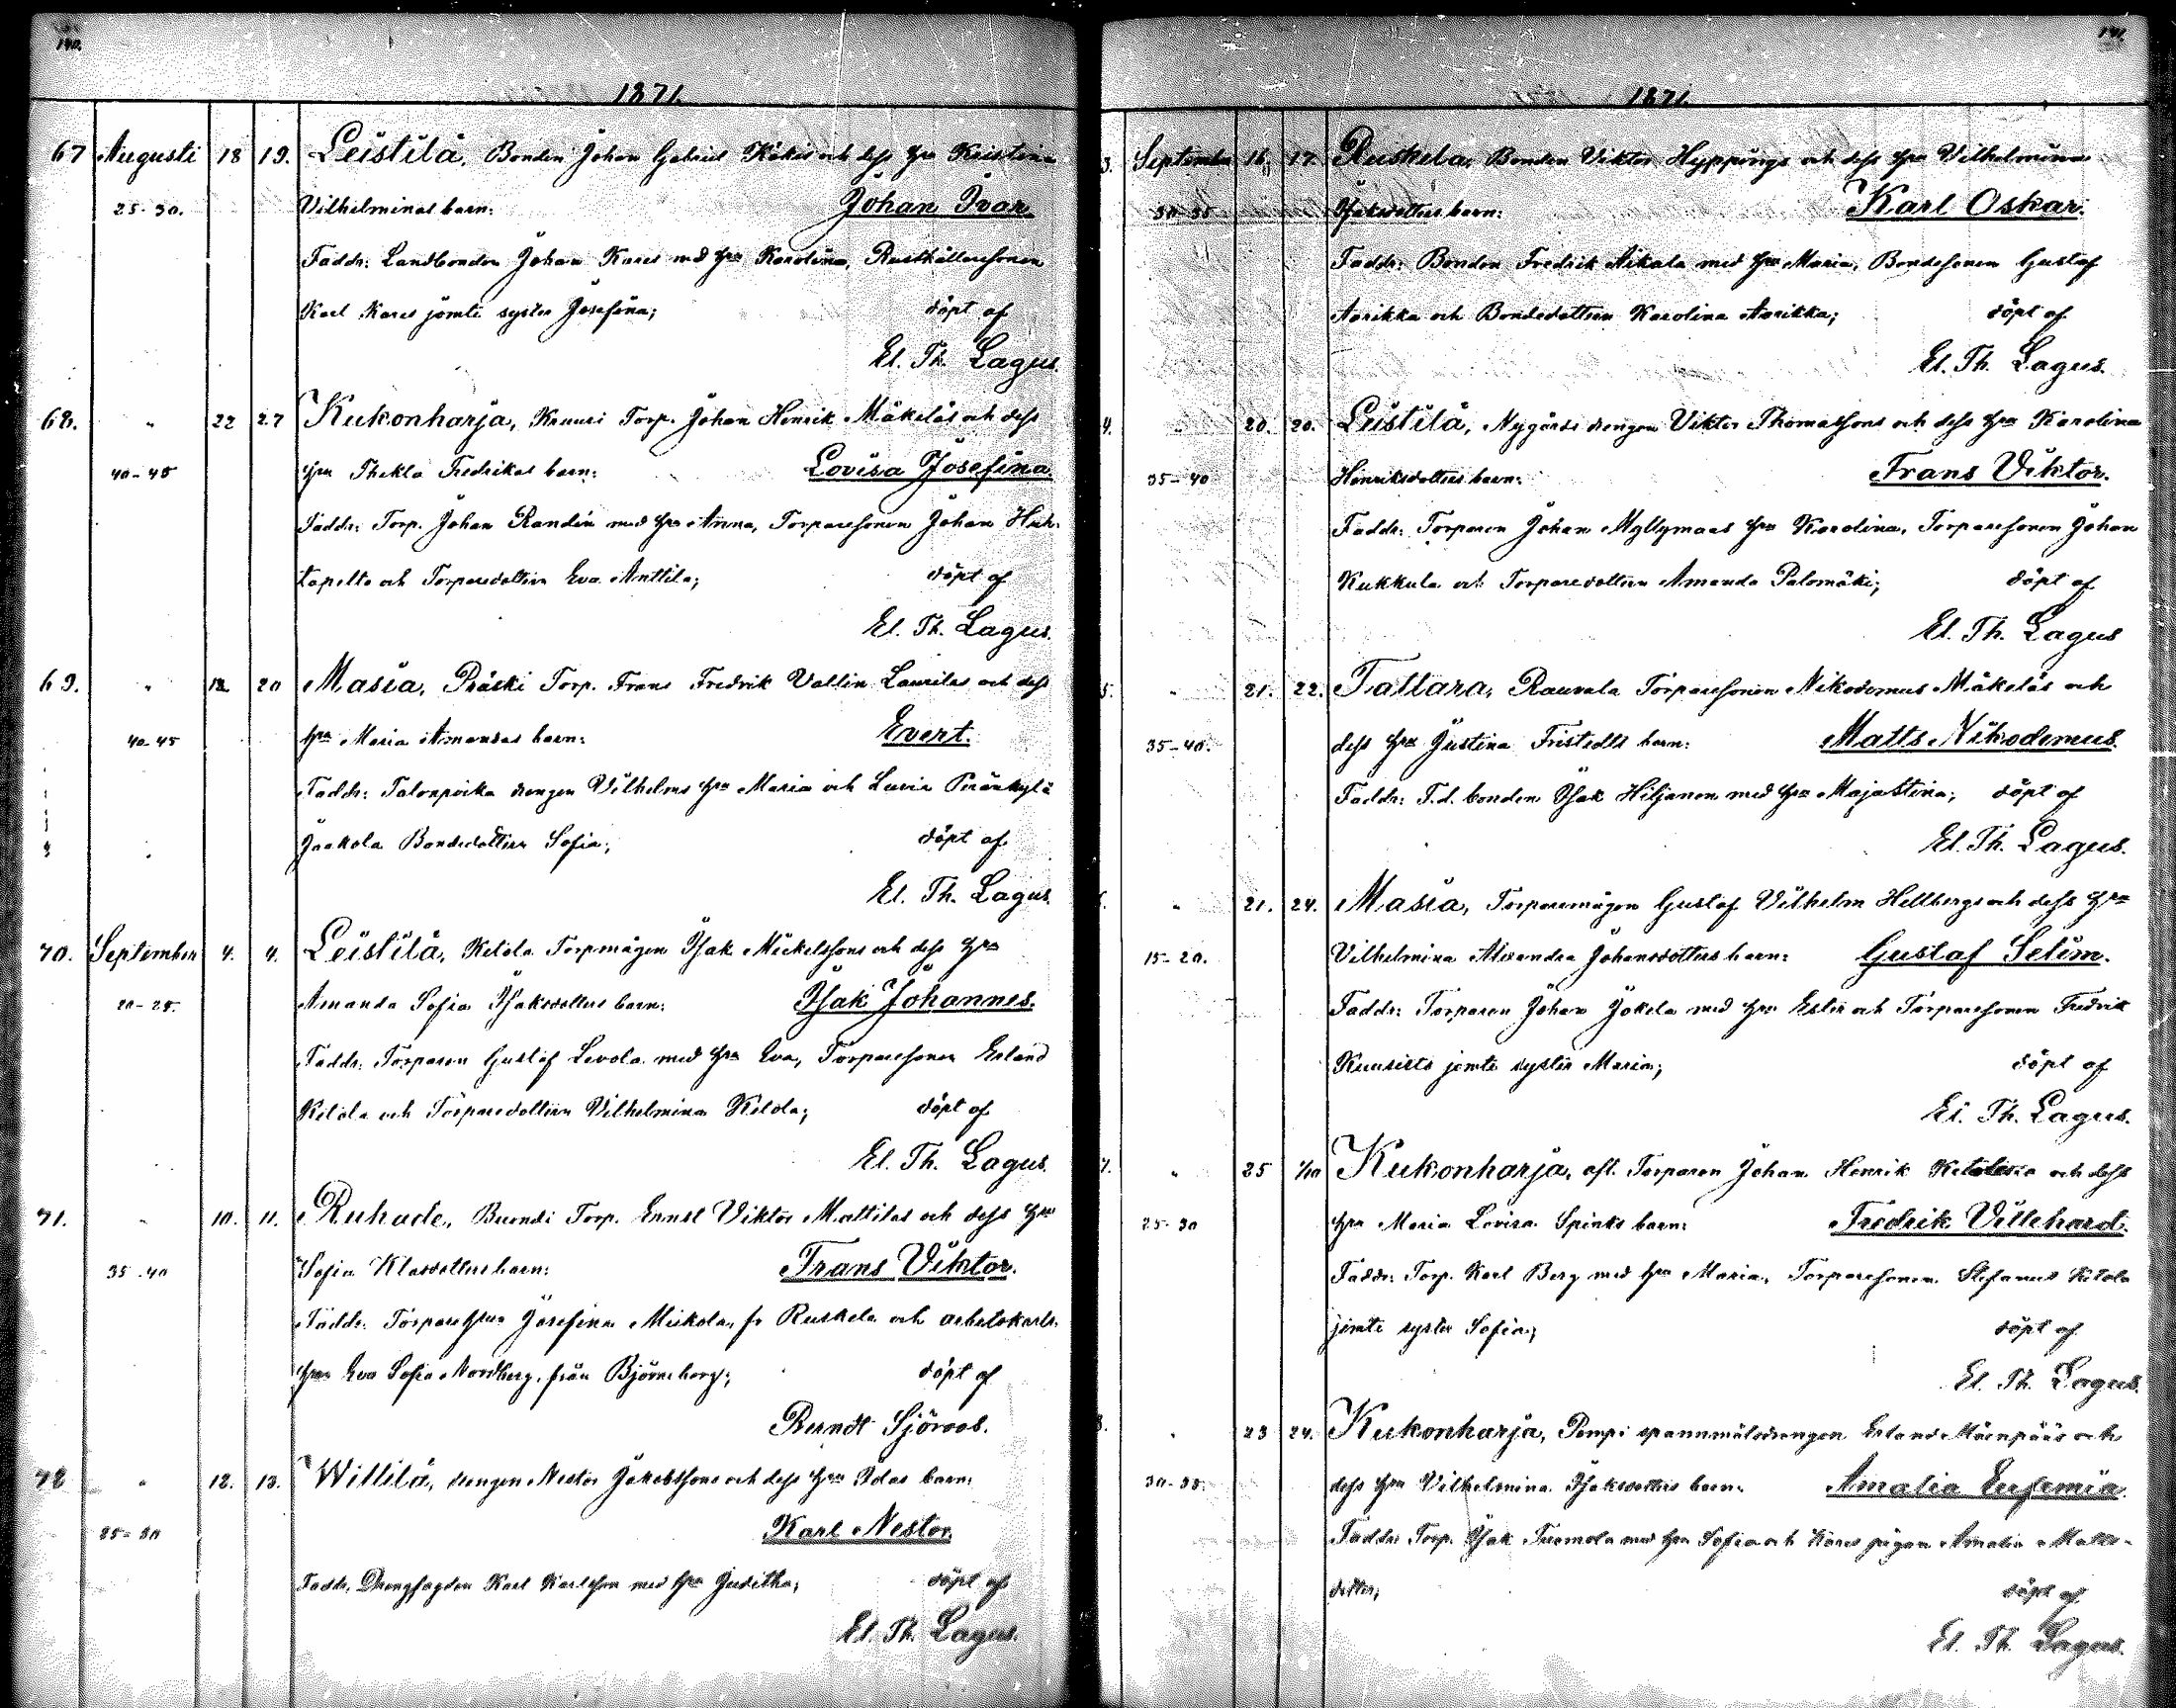 140.
1871.
67 Augusti 18 19. Leistilä, Bonden Johan Gabriel Kåkis och dess hru Kristina
25-30. Vilhelminas barn: Johan Ivar.
Faddr: Landbonden Johan Kares med hru Karolina, Rusthållaresonen
Karl Kares jemte syster Josefina; döpt af
El. Th. Lagus.
68. " 22 27 Kukonharja, Kruusi Torp. Johan Henrik Mäkeläs och dess
40-45 hru Thekla Fredrikas barn: Lovisa Josefina.
Faddr: Torp. Johan Randén med hru Anna, Torparesonen Johan Huh-
tapelto och Torparedottern Eva Anttila; döpt af
El. Th. Lagus.
69. " 12. 20 Masia, Präski Torp. Frans Fredrik Vallin Laurilas och dess
40-45 hru Maria Amandas barn: Evert.
Faddr: Talonpoika drengen Vilhelms hru Maria och Lavia Peränkylä
Jaakola Bondedottern Sofia; döpt af
El. Th. Lagus.
70. September 4. 4. Leistilä, Ketola Torpmågen Isak Mickelssons och dess hru
20-25. Amanda Sofia Isaksdotters barn: Isak Johannes.
Faddr: Torparen Gustaf Levola med hru Eva, Torparesonen Erland
Ketola och Torparedottern Vilhelmina Ketola; döpt af
El. Th. Lagus.
71. " 10. 11. Ruhade, Buondi Torp. Ernst Viktor Mattilas och dess hru
35-40 Sofia Klasdotters barn: Frans Viktor.
Faddr: Torparehrun Josefina Mickola, fr Ruskela och arbetskarls-
hrun Eva Sofia Nordberg, från Björneborg; döpt af
Berndt Sjöroos.
72 " 12. 13. Willilä, drengen Nestor Jakobssons och dess hru Idas barn:
25-30 Karl Nestor.
Faddr, Drengfogden Karl Karlsson med hru Juditha; döpt af
El. Th. Lagus.
141.
1871.
3. September 16. 17. Ruskela, Bonden Viktor Hyppings och dess hru Vilhelmina
30-35 Isaksdotters barn: Karl Oskar.
Faddr: Bonden Fredrik Aikala med hru Maria, Bondesonen Gustaf
Aarikka och Bondedottern Karolina Aarikka; döpt af
El. Th. Lagus.
4. " 20. 20. Leistilä, Nygårds drengen Viktor Thomassons och dess hru Karolina
35-40 Henriksdotters barn: Frans Viktor.
Faddr: Torparen Johan Myllymaas hru Karolina, Torparesonen Johan
Kukkula och Torparedottern Amanda Palomäki; döpt af
El. Th. Lagus
5. " 21. 22. Tattara, Rauvala Torparesonen Nikodemus Mäkeläs och
35-40. dess hru Justina Fristedts barn: Matts Nikodemus.
Faddr: F.d. bonden Isak Hiljanen med hru Majastina; döpt af
El. Th. Lagus.
" 21. 24. Masia, Torparemågen Gustaf Vilhelm Hellbergs och dess hru
15-20. Vilhelmina Alexandra Johansdotters barn: Gustaf Selim.
Faddr: Torparen Johan Jokela med hru Ester och Torparesonen Fredrik
Kuusisto jemte syster Maria; döpt af
El. Th. Lagus.
7. " 25 1/10 Kukonharja, afl. Torparen Johan Henrik och dess
25-30 hru Maria Lovisa Spinks barn: Fredrik Villehard.
Faddr: Torp. Karl Berg med hru Maria, Torparesonen Stefanus Ketola
jemte syster Sofia; döpt af
El. Th. Lagus.
8. " 23 24. Kukonharja, Pempi spannmålsdrengen Erland Mäenpääs och
30-35. dess hru Vilhelmina Isaksdotters barn: Amalia Eufemia.
Faddr: Torp. Isak Tuomola med hru Sofia och Kares pigan Amalia Matts-
dotter; döpt af
El. Th. Lagus.